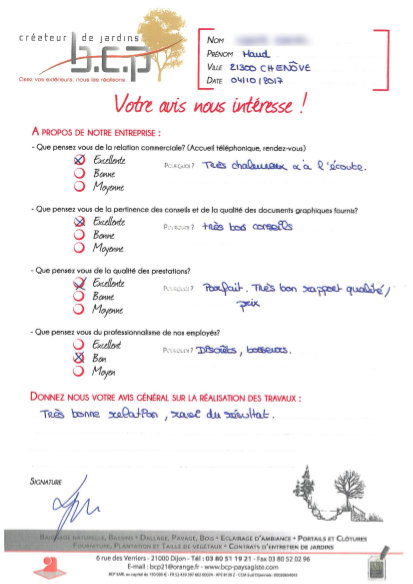 créateur de jardins
b.c.p
Créez vos extérieurs, nous les réalisons
NOM
PRÉNOM Maud
VILLE 21300 CHENÔVE
DATE 04/10/2017
Votre avis nous intéresse !
A PROPOS DE NOTRE ENTREPRISE :
- Que pensez vous de la relation commerciale? (Accueil téléphonique, rendez-vous)
Excellente
Bonne
Moyenne
POURQUOI? Très chaleureux à l'écoute.
- Que pensez vous de la pertinence des conseils et de la qualité des documents graphiques fournis?
Excellente
Bonne
Moyenne
POURQUOI? très bons conseils
- Que pensez vous de la qualité des prestations?
Excellente
Bonne
Moyenne
POURQUOI? Parfait. Très bon rapport qualité/
prix
- Que pensez vous du professionnalisme de nos employés?
Excellent
Bon
Moyen
POURQUOI? Discrets, bosseurs.
DONNEZ NOUS VOTRE AVIS GÉNÉRAL SUR LA RÉALISATION DES TRAVAUX :
Très bonne relation, ravi du résultat.
SIGNATURE
BAIGNADE NATURELLE, BASSINS • DALLAGE, PAVAGE, BOIS • ECLAIRAGE D'AMBIANCE • PORTAILS ET CLÔTURES
FOURNITURE, PLANTATION ET TAILLE DE VÉGÉTAUX • CONTRATS D'ENTRETIEN DE JARDINS
6 rue des Verriers - 21000 Dijon - Tél : 03 80 51 19 21 - Fax 03 80 52 02 96
E-mail : bcp21@orange.fr - www.bcp-paysagiste.com